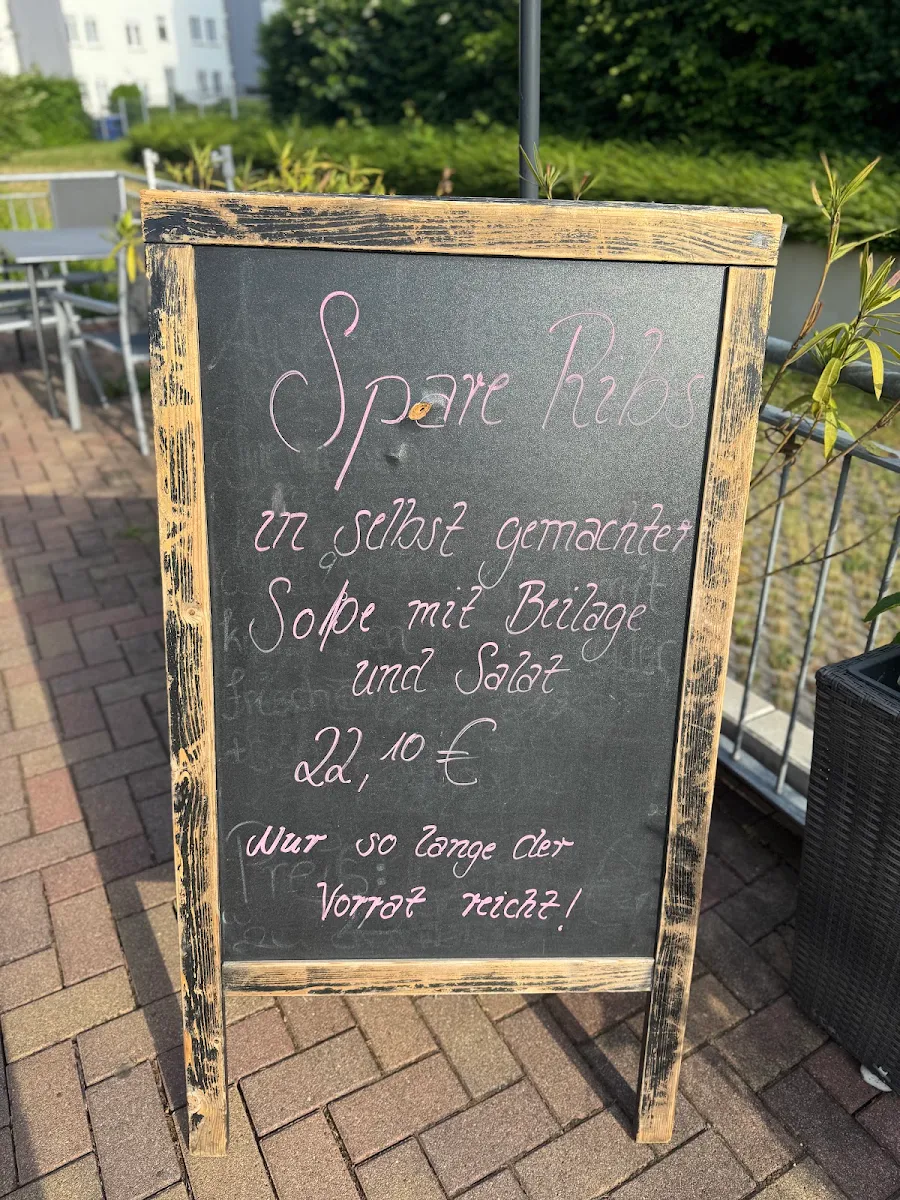 Spare Ribs
in selbst gemachter
Soße mit Beilage
und Salat
22,10 €
Nur so lange der
Vorrat reicht!
Preis: